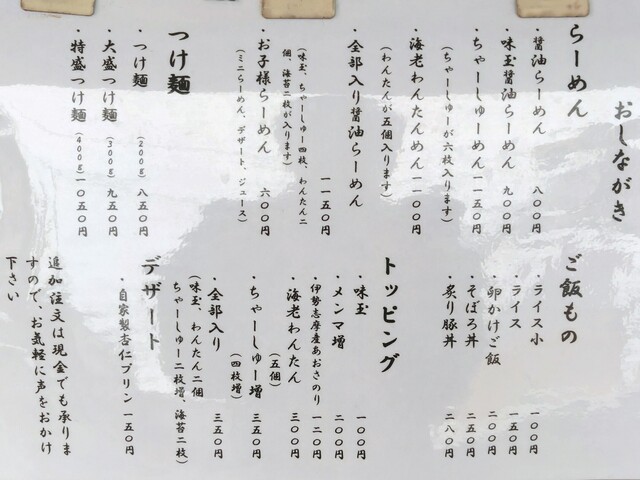 おしながき
らーめん
・醤油らーめん 八〇〇円
・味玉醤油らーめん 九〇〇円
・ちゃーしゅーめん 一一五〇円
(ちゃーしゅーが六枚入ります)
・海老わんたんめん 一一〇〇円
(わんたんが五個入ります)
・全部入り醤油らーめん
一一五〇円
(味玉、ちゃーしゅー四枚、わんたん二
個、海苔二枚が入ります)
・お子様らーめん 六〇〇円
(ミニらーめん、デザート、ジュース)
つけ麺
・つけ麺 (200g) 八五〇円
・大盛つけ麺 (300g) 九五〇円
・特盛つけ麺 (400g) 一〇五〇円
ご飯もの
・ライス小 一〇〇円
・ライス 一五〇円
・卵かけご飯 二〇〇円
・そぼろ丼 二五〇円
・炙り豚丼 二八〇円
トッピング
・味玉 一〇〇円
・メンマ増 二〇〇円
・伊勢志摩産あおさのり 一二〇円
・海老わんたん 三〇〇円
(五個)
・ちゃーしゅー増 三五〇円
(四枚増)
・全部入り 三五〇円
(味玉、わんたん二個
ちゃーしゅー二枚増、海苔二枚)
デザート
・自家製杏仁プリン 一五〇円
追加注文は現金でも承りま
すので、お気軽に声をおかけ
下さい